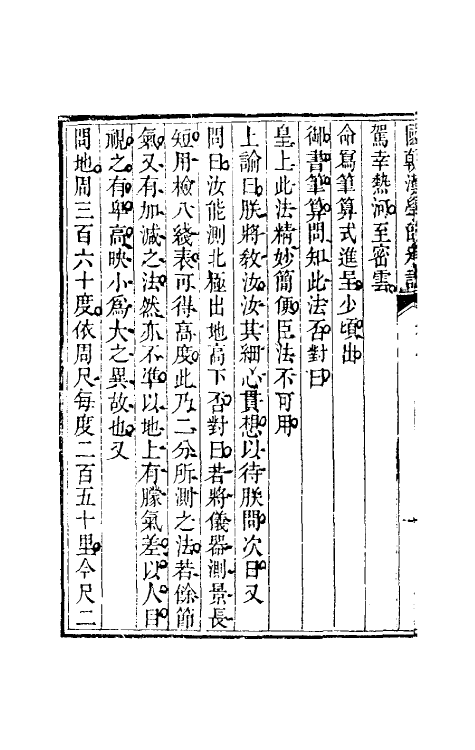 國朝漢學師承記
駕幸熱河至密雲
命寫筆算式進呈少頃出
御書筆算問知此法否對曰
皇上此法精妙簡便臣法不可用
上諭曰朕將教汝汝其細心貫想以待朕問次日又
問曰汝能測北極出地高下否對曰若將儀器測景長
短用檢八綫表可得高度此乃二分所測之法若餘節
氣又有加減之法然亦不準以地上有朦氣差以人目
視之有舉高映小為大之異故也又
問地周三百六十度依周尺每度二百五十里今尺二